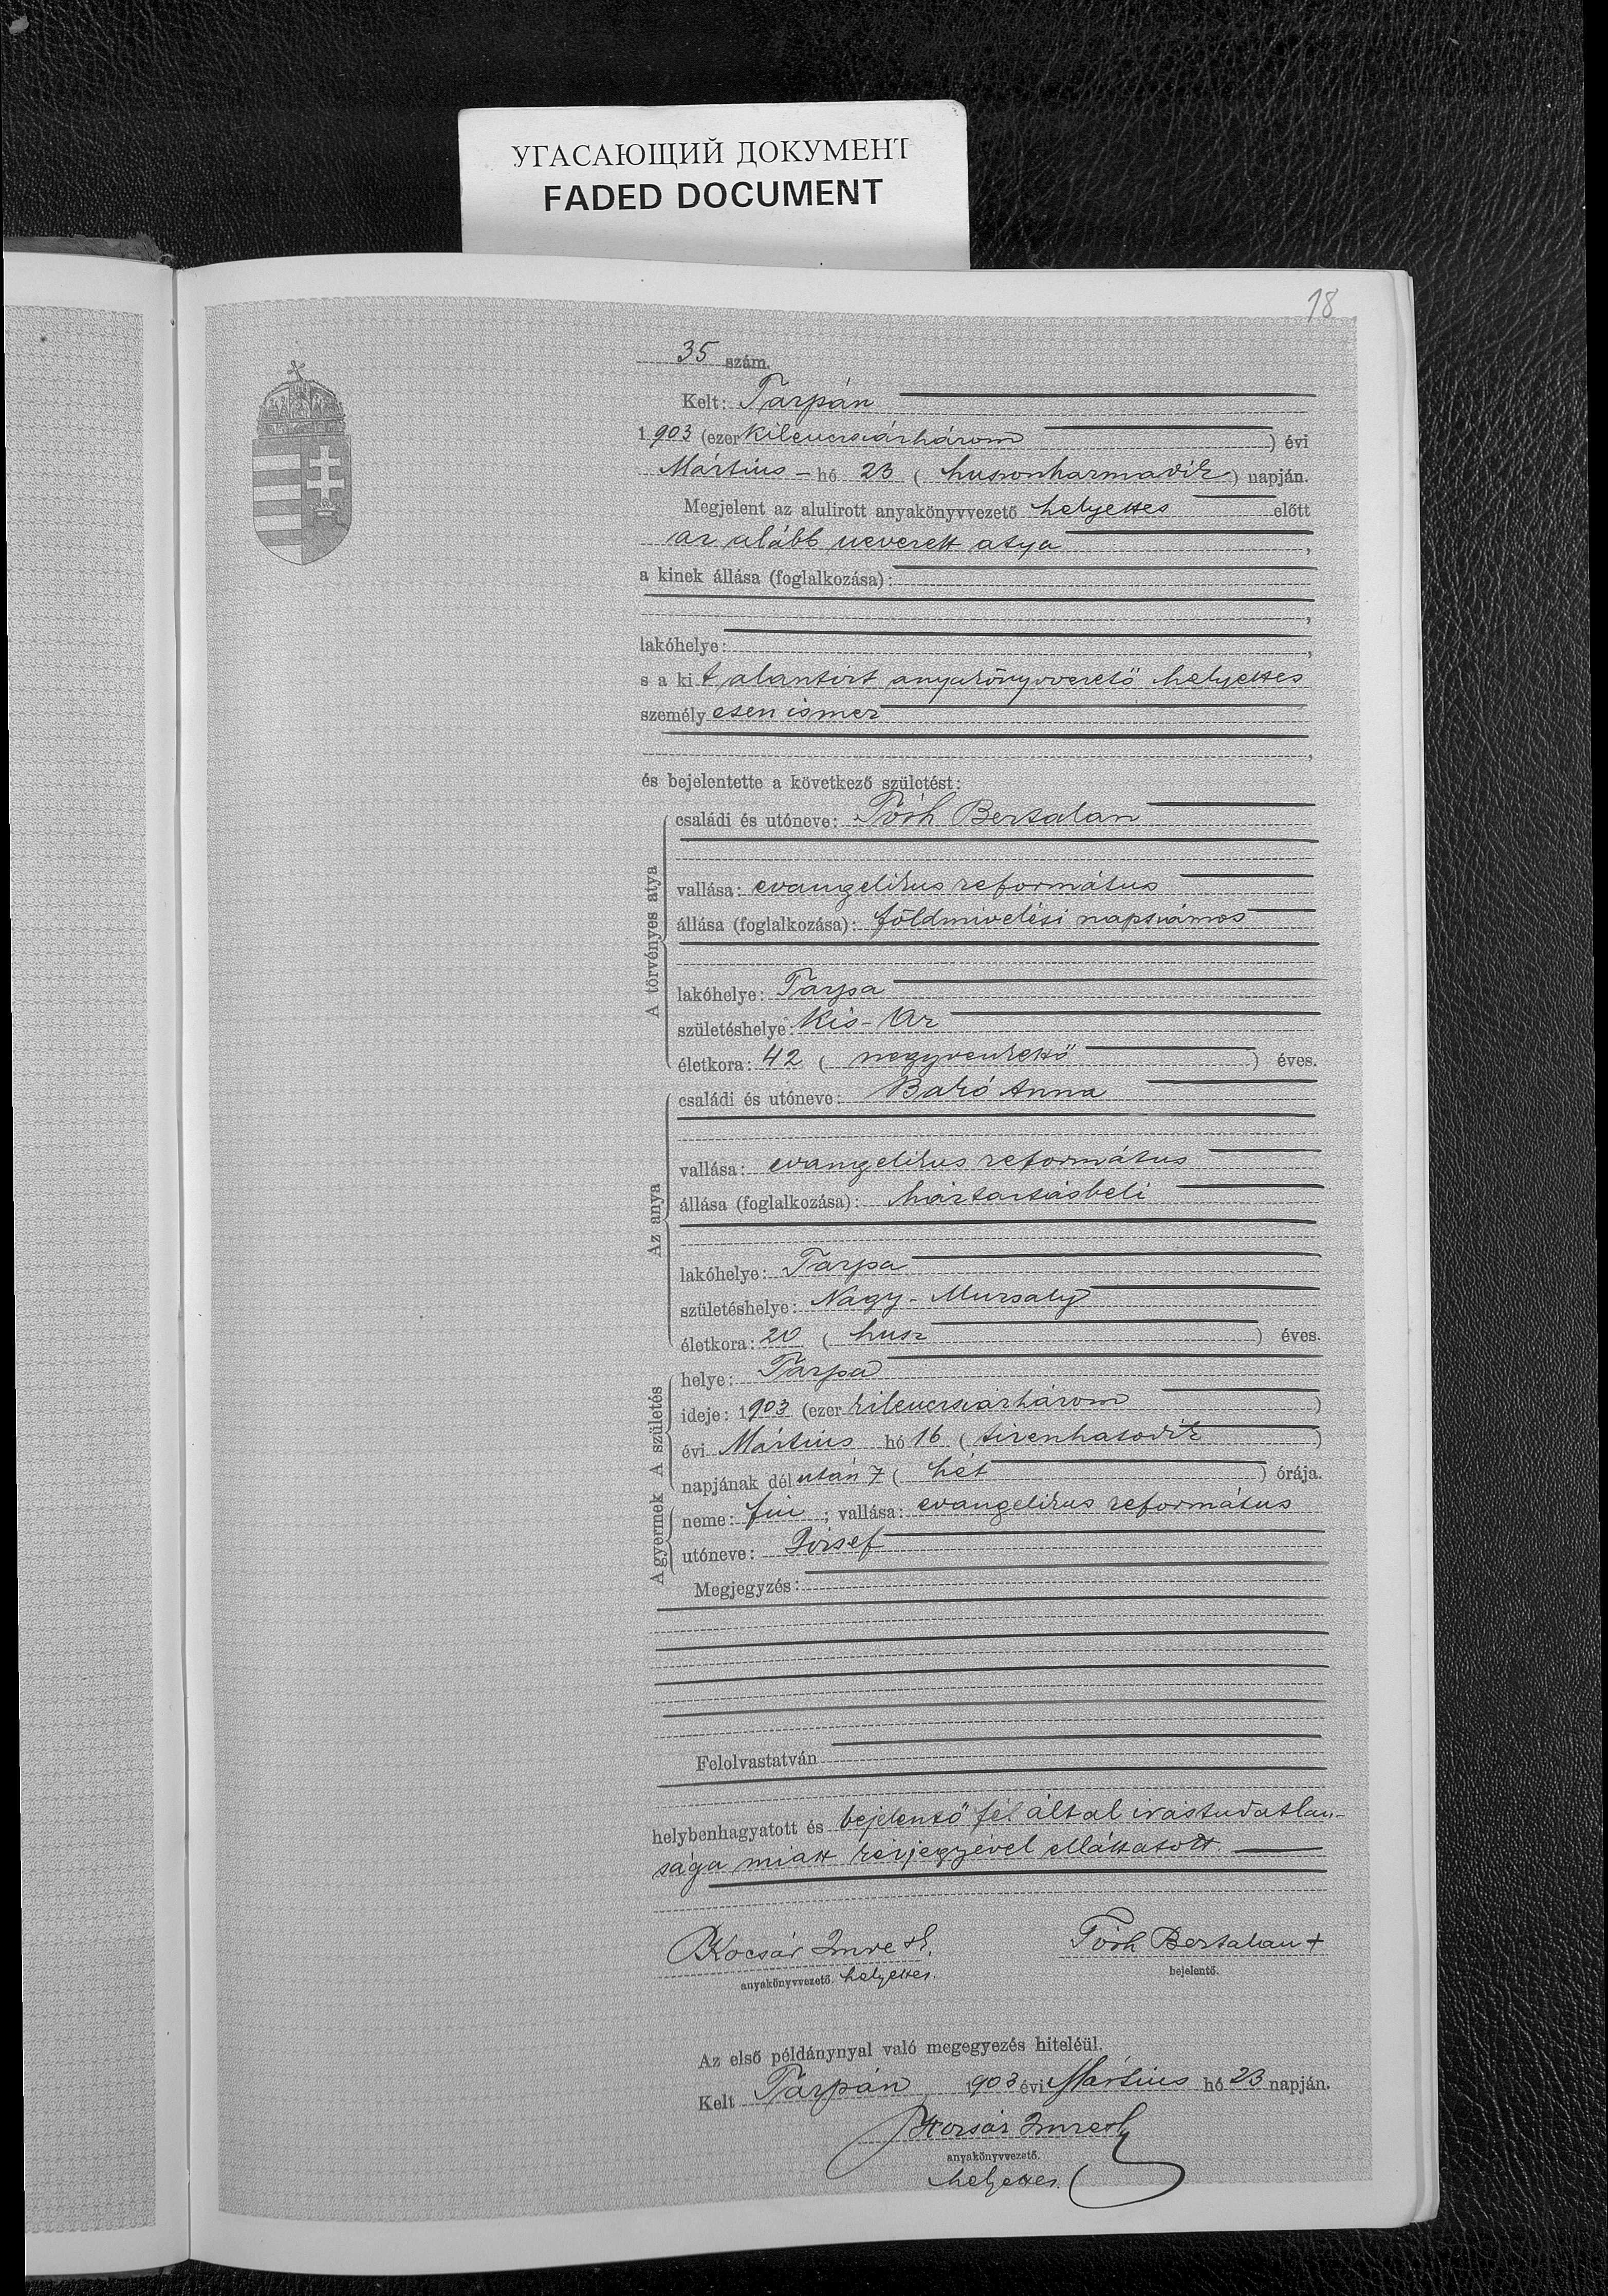 УГАСАЮЩИЙ ДОКУМЕНТ
FADED DOCUMENT
18
35 szám.
Kelt: Tarpán
1903 (ezer kilencszázhárom) évi
Mártius hó 23 (huszonharmadik) napján.
Megjelent az alulirott anyakönyvvezető helyettes előtt
az alább nevezett atya,
a kinek állása (foglalkozása):
,
lakóhelye: ,
s a kit alantirt anyakönyvvezető helyettes
személyesen ismer
,
és bejelentette a következő születést:
A törvényes atya
családi és utóneve: Tóth Bertalan
vallása: evangelikus református
állása (foglalkozása): földmivelési napszámos
lakóhelye: Tarpa
születéshelye: Kis-Ar
életkora: 42 (negyvenkettő) éves.
Az anya
családi és utóneve: Bakó Anna
vallása: evangelikus református
állása (foglalkozása): háztartásbeli
lakóhelye: Tarpa
születéshelye: Nagy-Muzsaly
életkora: 20 (husz) éves.
A születés
helye: Tarpa
ideje: 1903 (ezer kilencszázhárom)
évi Mártius hó 16 (tizenhatodik)
napjának délután 7 (hét) órája.
A gyermek
neme: fiú; vallása: evangelikus református
utóneve: József
Megjegyzés:
Felolvastatván
helybenhagyatott és bejelentő fél által irástudatlan-
sága miatt kézjegyével elláttatott.
Kocsár Imre Tóth Bertalan +
anyakönyvvezető helyettes. bejelentő.
Az első példánynyal való megegyezés hiteléül.
Kelt Tarpán, 1903 évi Mártius hó 23 napján.
Kocsár Imre
anyakönyvvezető.
helyettes.